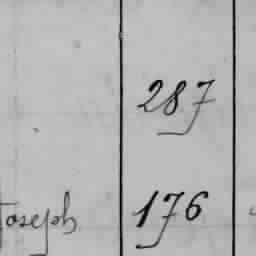 287
Joseph 176